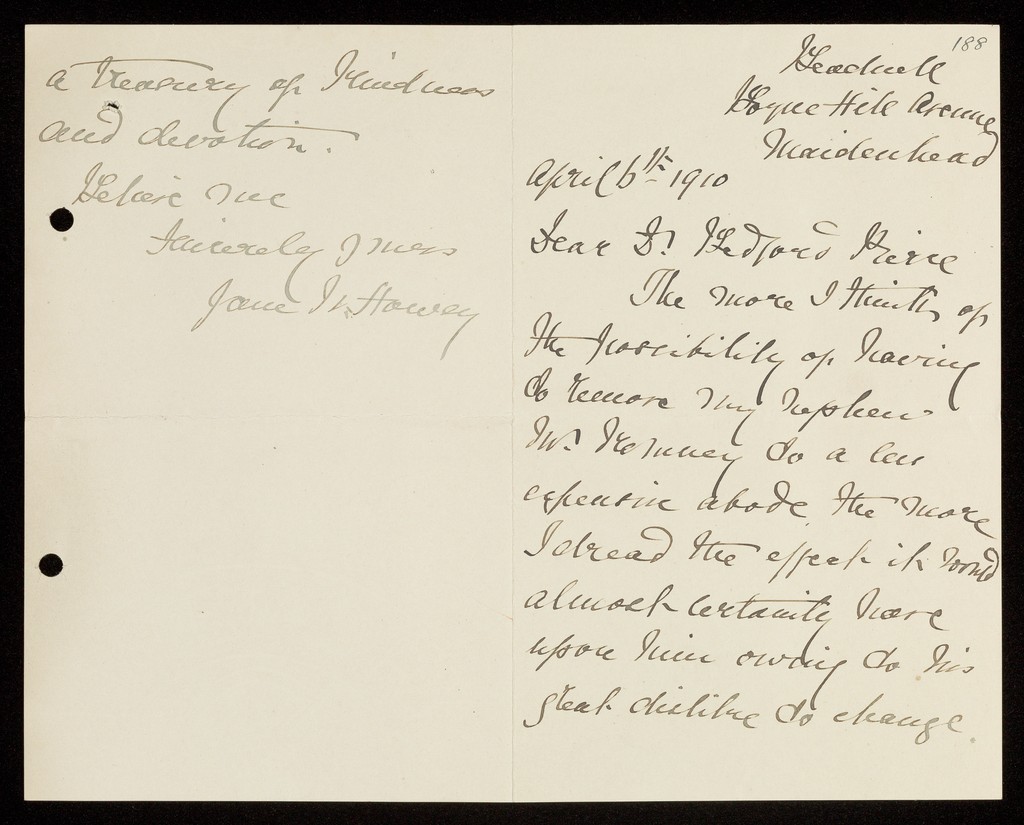 188
Beadnell
Boyne Hill Avenue
Maidenhead
April 6th 1910
Dear Dr Bedford Pierce
The more I think of
the possibility of having
to remove my nephew
Mr. Romney to a less
expensive abode, the more
I dread the effect it would
almost certainly have
upon him owing to his
great dislike to change.
a treasury of kindness
and devotion.
Believe me
Sincerely yours
Jane Howey